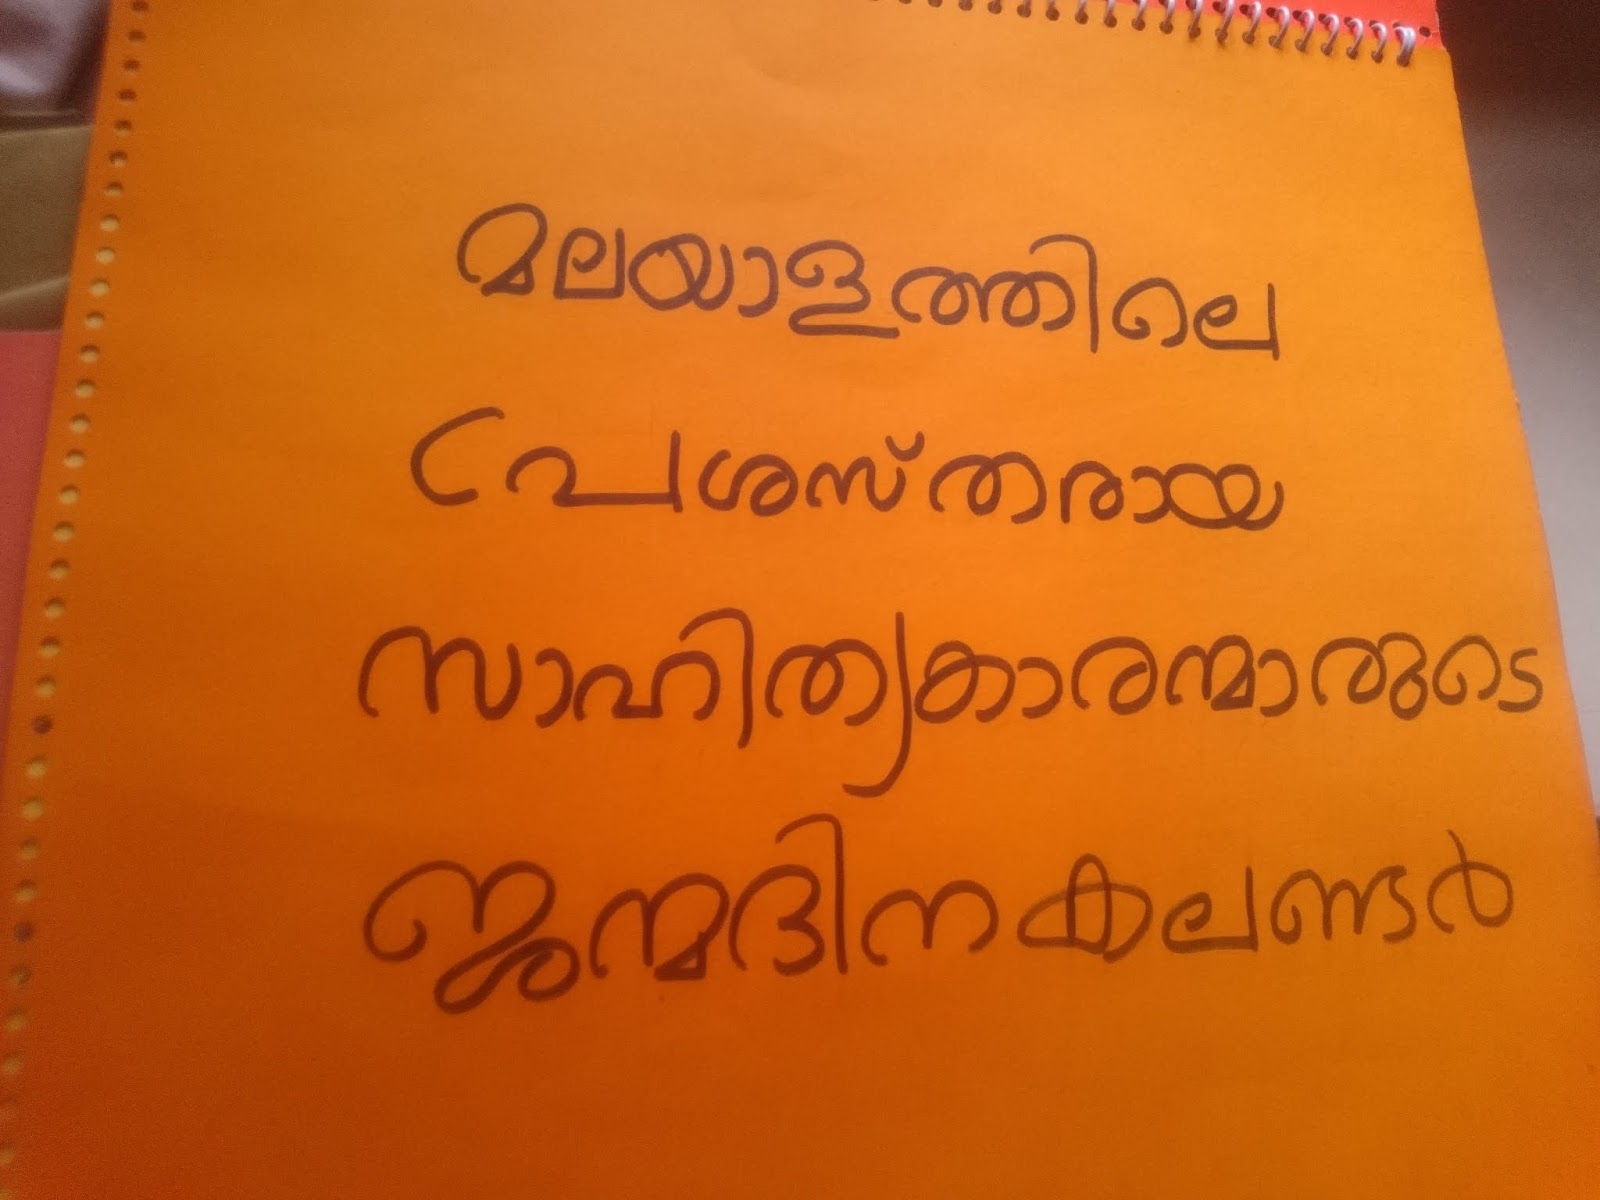 മലയാളത്തിലെ
പ്രശസ്തരായ
സാഹിത്യകാരന്മാരുടെ
ജന്മദിന കലണ്ടർ